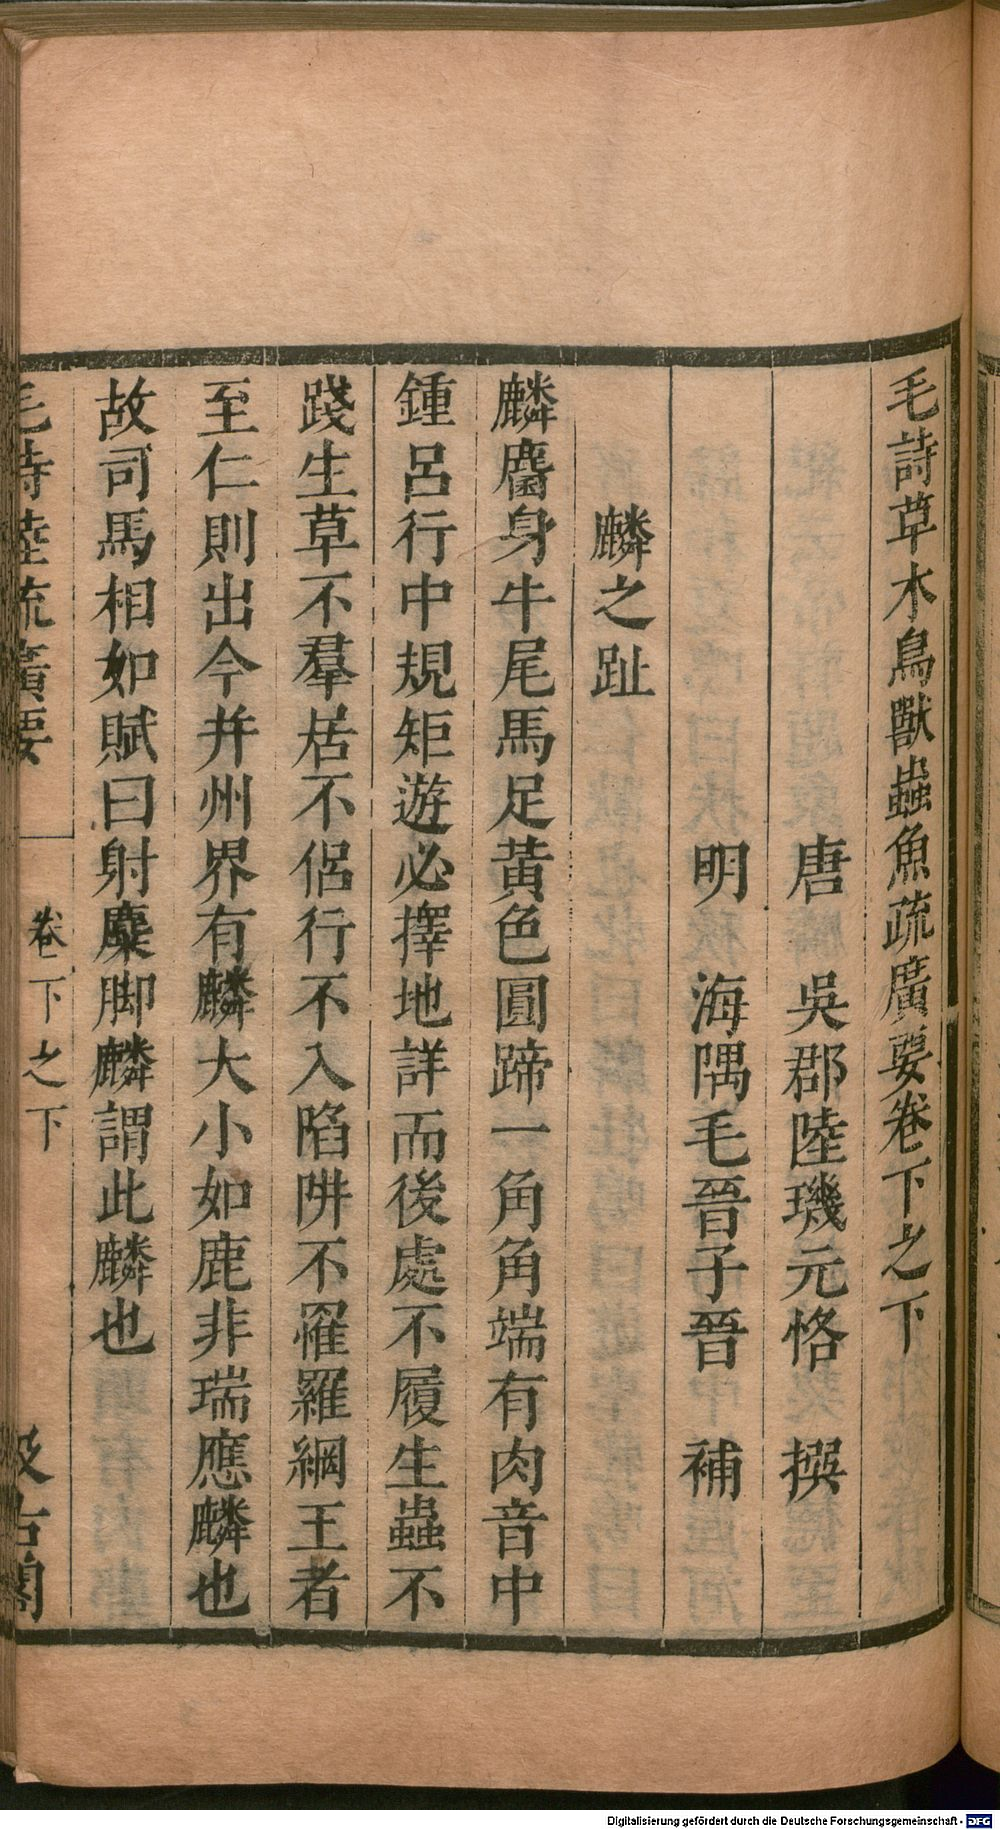 毛詩草木鳥獸蟲魚疏廣要卷下之下
唐 吳郡陸璣元恪 撰
明 海隅毛晉子晉 補
麟之趾
麟麕身牛尾馬足黃色圓蹄一角角端有肉音中
鍾呂行中規矩遊必擇地詳而後處不履生蟲不
踐生草不羣居不侶行不入陷阱不罹羅網王者
至仁則出今并州界有麟大小如鹿非瑞應麟也
故司馬相如賦曰射麋脚麟謂此麟也
毛詩陸疏廣要 卷下之下 汲古閣
Digitalisierung gefördert durch die Deutsche Forschungsgemeinschaft - DFG